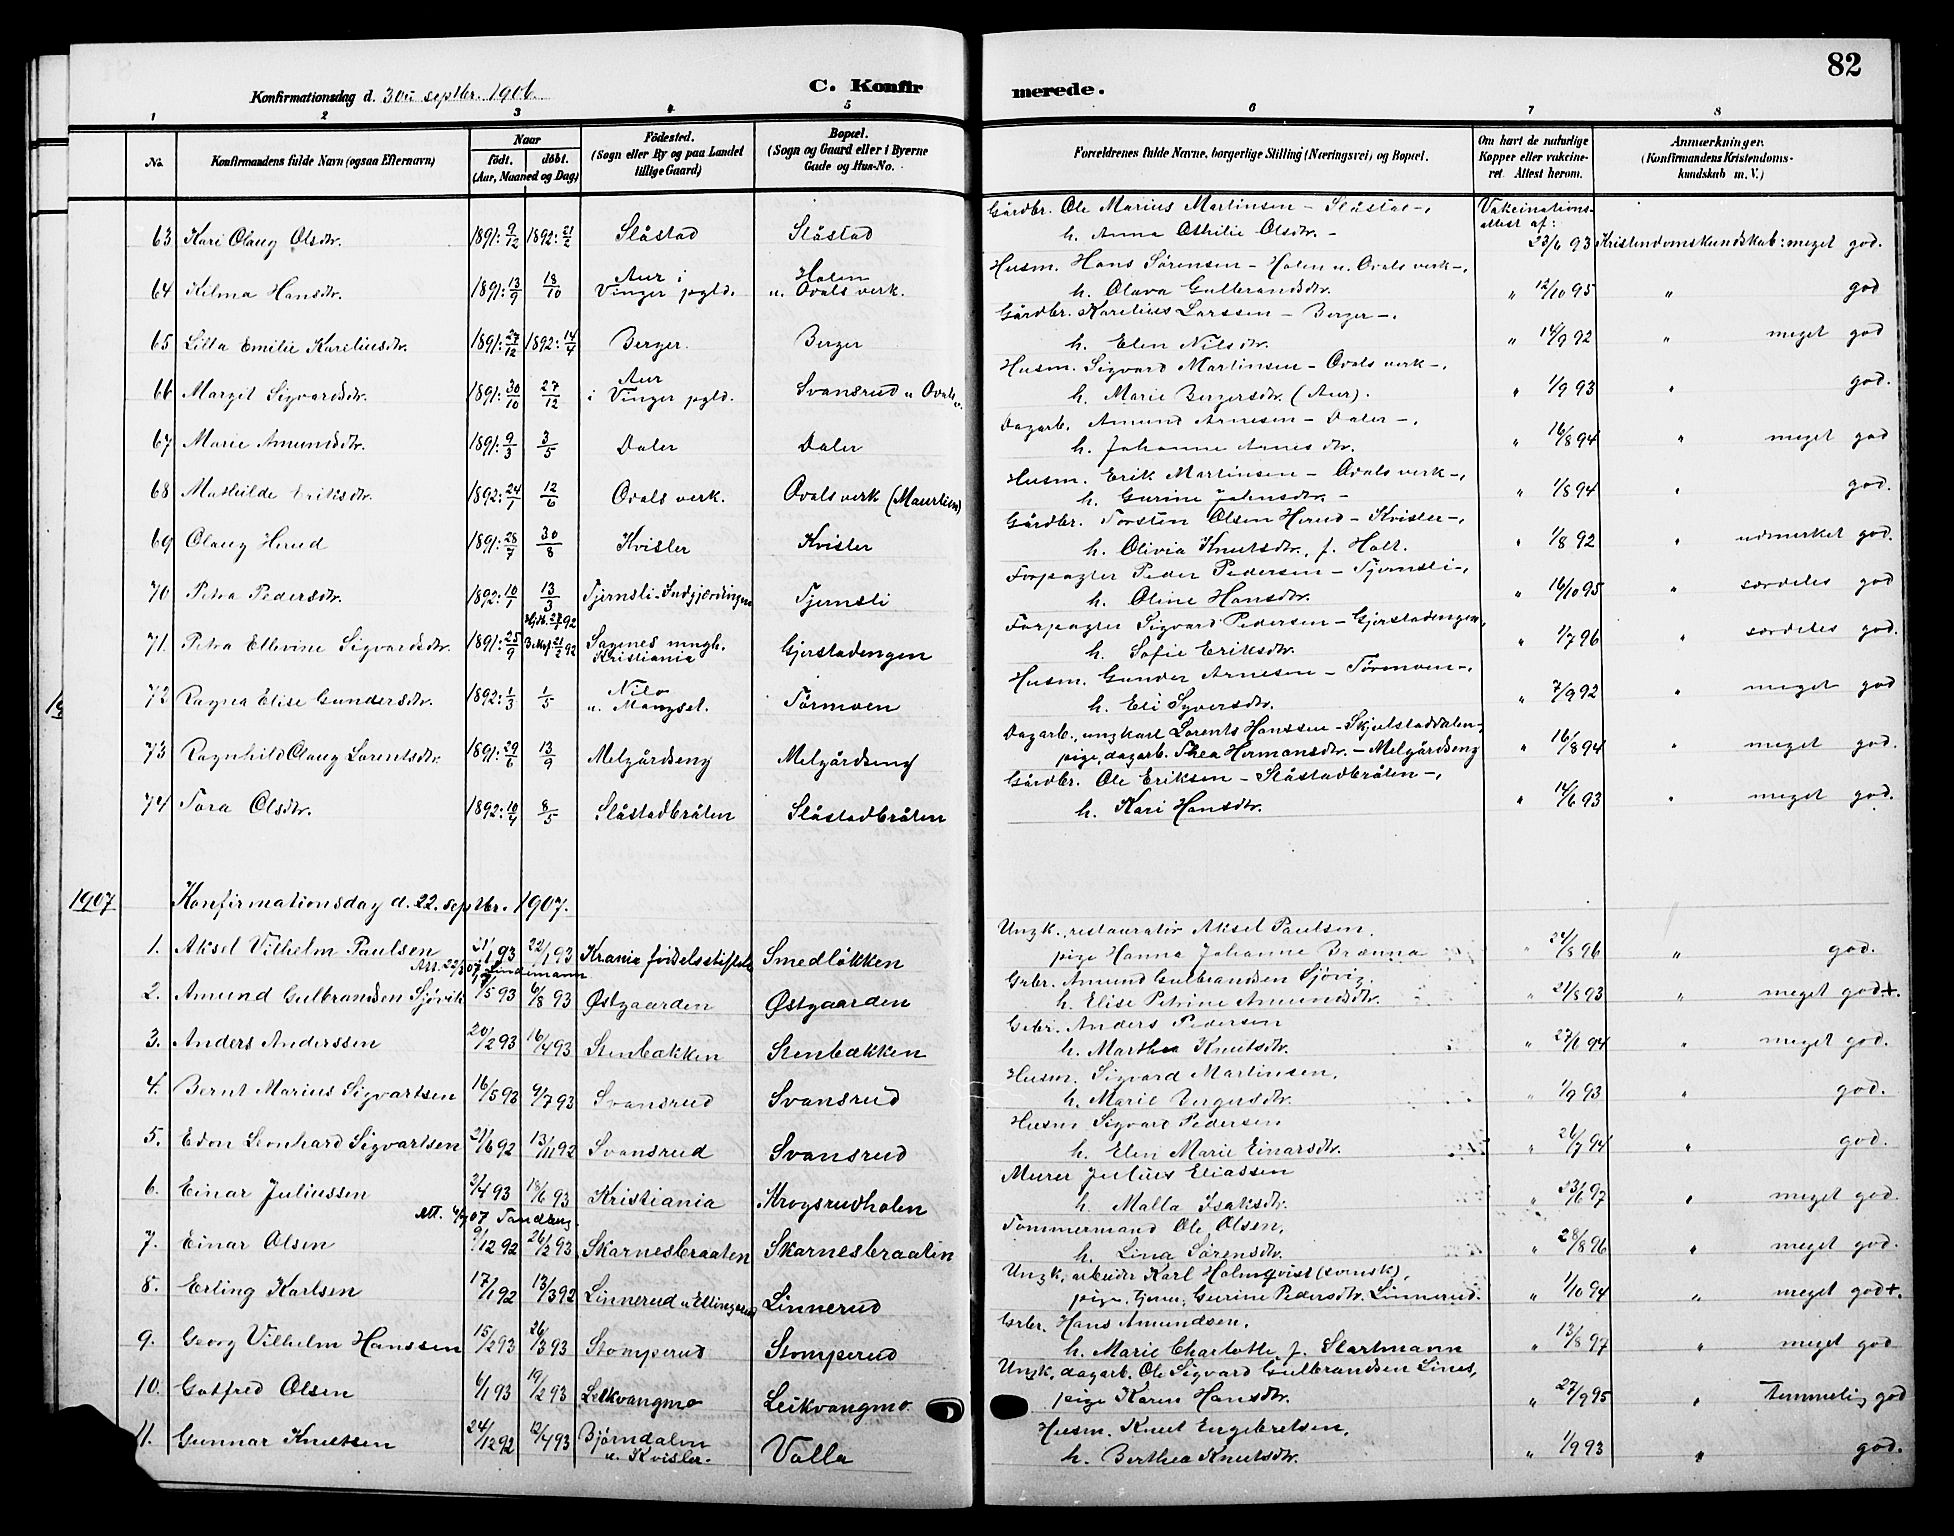 82
Konfirmationsdag d. 30te septbr. 1906.
C. Konfirmerede.
1 2 3 4 5 6 7 8
No. Konfirmandens fulde Navn (ogsaa Efternavn) Naar født. døbt. (Aar, Maaned og Dag) Fødested. (Sogn eller By og paa Landet tillige Gaard) Bopæl. (Sogn og Gaard eller i Byerne Gade og Hus-No. Forældrenes fulde Navne, borgerlige Stilling (Næringsvei) og Bopæl. Om havt de naturlige Kopper eller vakcineret. Attest herom. Anmærkninger. (Konfirmandens Kristendomskundskab m. V.)
63 Kari Olaug Olsdtr. 1891: 9/12 1892: 21/2 Slåstad Slåstad Gårdbr. Ole Marius Martinsen – Slåstad –, h. Anna Othilie Olsdtr. – Vakcinationsattest af: 23/6 93 Kristendomskundskab: meget god.
64 Hilma Hansdtr. 1891: 13/9 18/10 Aur i Vinger pgld. Holen u. Ovals verk. Husm. Hans Sørensen – Holen u. Ovals verk –, h. Olava Gulbrandsdtr. " 12/10 95 " god
65 Lilla Emilie Kareliusdtr. 1891: 27/12 1892: 14/4 Berger. Berger Gårdbr. Karelius Larssen – Berger –, h. Elen Nilsdtr. " 14/9 92 " meget god
66 Margit Sigvardsdtr. 1891: 30/10 27/12 Aur i Vinger pgld. Svansrud u. Ovals v. Husm. Sigvard Martinsen – Ovals verk –, h. Marie Bergersdtr. (Aur). " 1/9 93 " god.
67 Marie Amundsdtr. 1891: 9/3 3/5 Daler Daler Dagarb. Amund Arnesen – Daler –, h. Johanne Arnesdtr. " 16/8 94 " meget god
68 Mathilde Eriksdtr. 1892: 24/1 12/6 Ovals verk. Ovals verk Husm. Erik Martinsen – Ovals verk –, h. Gurine Johnsdtr. – " 1/8 94 " god.
69 Olaug Herud 1891: 28/7 30/8 Kvisler Kvisler Gårdbr. Torsten Olsen Herud – Kvisler –, h. Olivia Knutsdtr., f. Holt. " 1/8 92 " udmerket god.
70 Petra Pedersdtr. 1892: 10/1 13/3 Tjernsli-Indgjærdingen Tjernsli Forpagter Peder Pedersen – Tjernsli –, h. Oline Hansdtr. " 16/10 95 " særdeles god
71 Petra Ellevine Sigvardsdtr. 1891: 25/9 92 21/2 92 Sagenes mngh. Kristiania Gjerstadengen Forpagter Sigvard Pedersen – Gjerstadengen, h. Sofie Eriksdtr. " 1/7 96 " særdeles god.
72 Ragna Elise Gundersdtr. 1892: 1/3 1/5 u. Mangset. Tørmoen Husm. Gunder Arnesen – Tørmoen –, h. Eli Syversdtr. " 7/9 92 " meget god
73 Ragnhild Olaug Lorentsdtr. 1891: 29/6 13/9 Melgårdseng Melgårdseng Dagarb., ungkarl Lorents Hanssen – Skjelstaddalen, pige, dagarb. Thea Hermansdtr. – Melgårdseng " 16/8 94 " meget god.
74 Tora Olsdtr. 1892: 10/4 8/5 Slåstadbråten Slåstadbråten Gårdbr. Ole Eriksen – Slåstadbråten –, h. Kari Hansdtr. " 14/6 93 " meget god.
1907 Konfirmationsdag d. 22. septbr. 1907.
1. Aksel Vilhelm Paulsen 21/1 93 22/1 93 Krania fødselsstiftelse Smedløkken Ungk., restauratør Aksel Paulsen, pige Hanna Johanne Brænna " 24/8 96 " god.
Att. 22/3 07 Lindemann
2. Amund Gulbrandsen Sjøvik 7/5 93 6/8 93 Østgaarden Østgaarden Grbr. Amund Gulbrandsen Sjøvig. h. Elise Petrine Amundsdtr. " 21/8 93 " meget god+.
3. Anders Anderssen 20/2 93 16/4 93 Stenbækken Stenbækken Grbr. Anders Pedersen h. Marthea Knutsdtr. " 27/6 94 " meget god.
4. Bernt Marius Sigvartsen 16/5 93 9/7 93 Svansrud Svansrud Husm. Sigvard Martinsen, h. Marie " 1/9 93 " god.
5. Edon Leonhard Sigvartsen 21/6 92 13/11 92 Svansrud Svansrud Husm Sigvard Pedersen h. Elen Marie Einarsdtr. " 26/7 94 " god.
6. Einar Juliussen 3/4 93 18/6 93 Kristiania Krogsrudholen Murer Julius Eliassen h. Malla Isaksdtr. " 23/6 97 " meget god.
Att. 4/7 07 Tandberg.
7. Einar Olsen 9/12 92 26/2 93 Skarnesbraaten Skarnesbraaten Tømmermand Ole Olsen, h. Lina Sørensdtr. " 28/8 96 " meget god.
8. Erling Karlsen 17/1 92 13/3 92 Linnerud u. Ellingsrud Linnerud Ungk., arbeider Karl Holmqvist (svensk), pige, tjener, Gurine Pedersdtr. Linnerud. " 1/10 94 " meget god+.
9. Georg Vilhelm Hanssen 15/2 93 26/3 93 Stomperud Stomperud Grbr. Hans Amundsen, h. Marie Charlotte f. Startmann " 13/8 97 " meget god
10. Gotfred Olsen 6/1 93 19/2 93 Leikvangmo Leikvangmo Ungk., dagarb. Ole Sigvard Gulbrandsen Lines, pige Karen Hansdtr. " 27/9 95 " temmelig god
11. Gunnar Knutsen 24/12 92 12/4 93 Bjørndalen u. Kvisler. Valla Husm. Knut Engebretsen, h. Berthea Knutsdtr. " 1/9 93 " god.